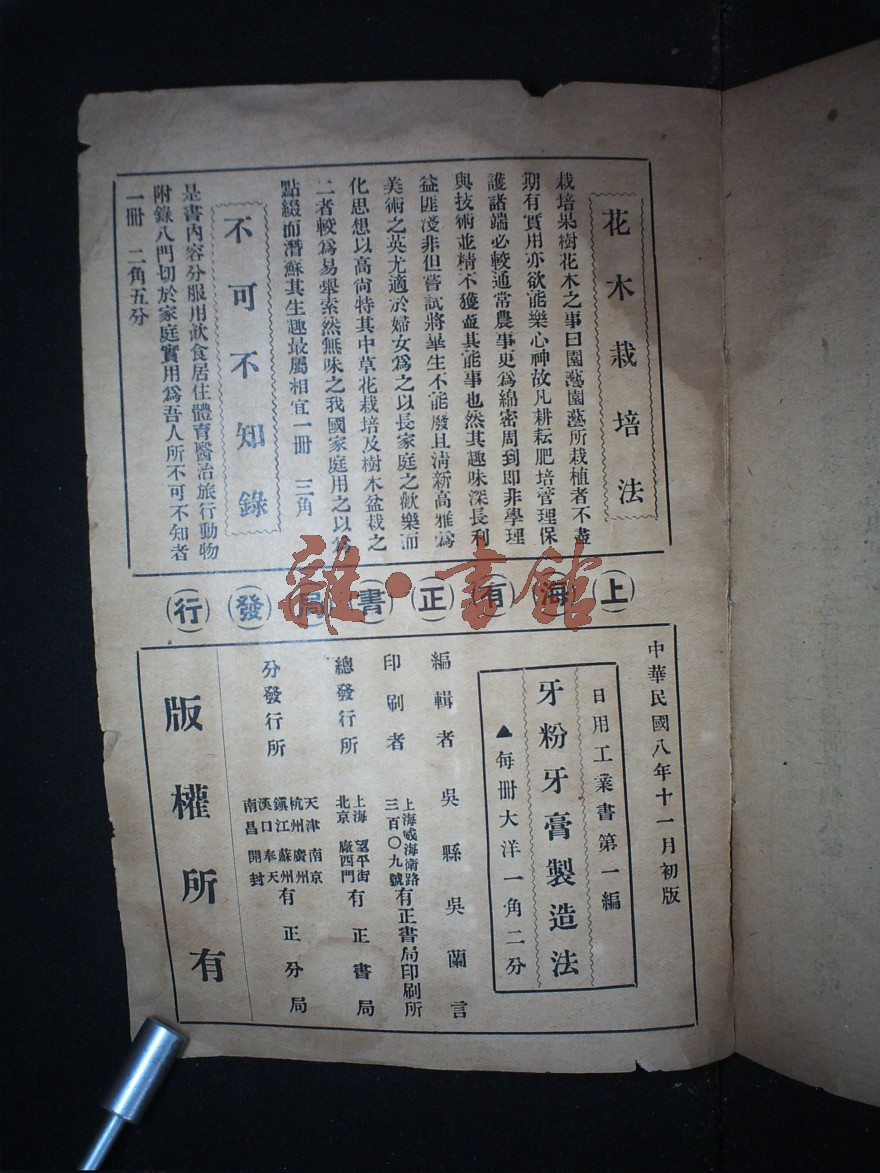 花木栽培法
栽培果樹花木之事曰園藝園藝所栽植者不盡
期有實用亦欲能樂心神故凡耕耘肥培管理保
護諸端必較通常農事更爲綿密周到即非學理
與技術並精不獲盡其能事也然其趣味深長利
益匪淺非但嘗試將畢生不能廢且淸新高雅爲
美術之英尤適於婦女爲之以長家庭之歡樂而
化思想以高尚特其中草花栽培及樹木盆栽之
二者較爲易舉索然無味之我國家庭用之以爲
點綴而潛蘇其生趣最屬相宜一冊 三角
不可不知錄
是書內容分服用飲食居住體育醫治旅行動物
附錄八門切於家庭實用爲吾人所不可不知者
一冊 二角五分
上海有正書局發行
雜·書館
中華民國八年十一月初版
日用工業書第一編
牙粉牙膏製造法
▲每冊大洋一角二分
編輯者 吳縣吳蘭言
印刷者 上海威海衛路三百〇九號 有正書局印刷所
總發行所 上海望平街 北京廠西門 有正書局
分發行所 天津 南京 杭州 廣州 鎮江 蘇州 漢口 奉天 南昌 開封 有正分局
版權所有